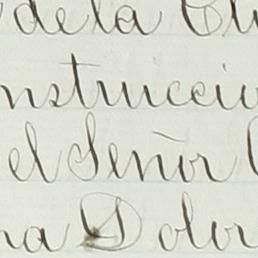 de la
nstruccio
el Señor
na Dolor